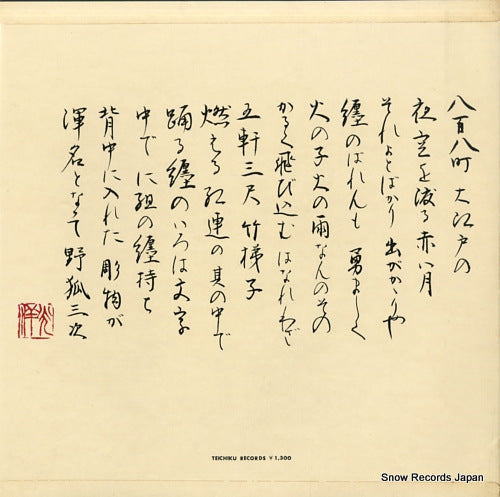 八百八町 大江戸の
夜空を渡る赤い月
それよとばかり 出がかりや
纏のばれんも 勇ましく
火の子火の雨なんのその
かるく飛び込む はなれわざ
五軒三尺 竹梯子
燃える紅連の其の中で
踊る纏のいろは文字
中でに組の纏持ち
背中に入れた彫物が
渾名となって 野狐三次
TEICHIKU RECORDS ¥1,300
Snow Records Japan